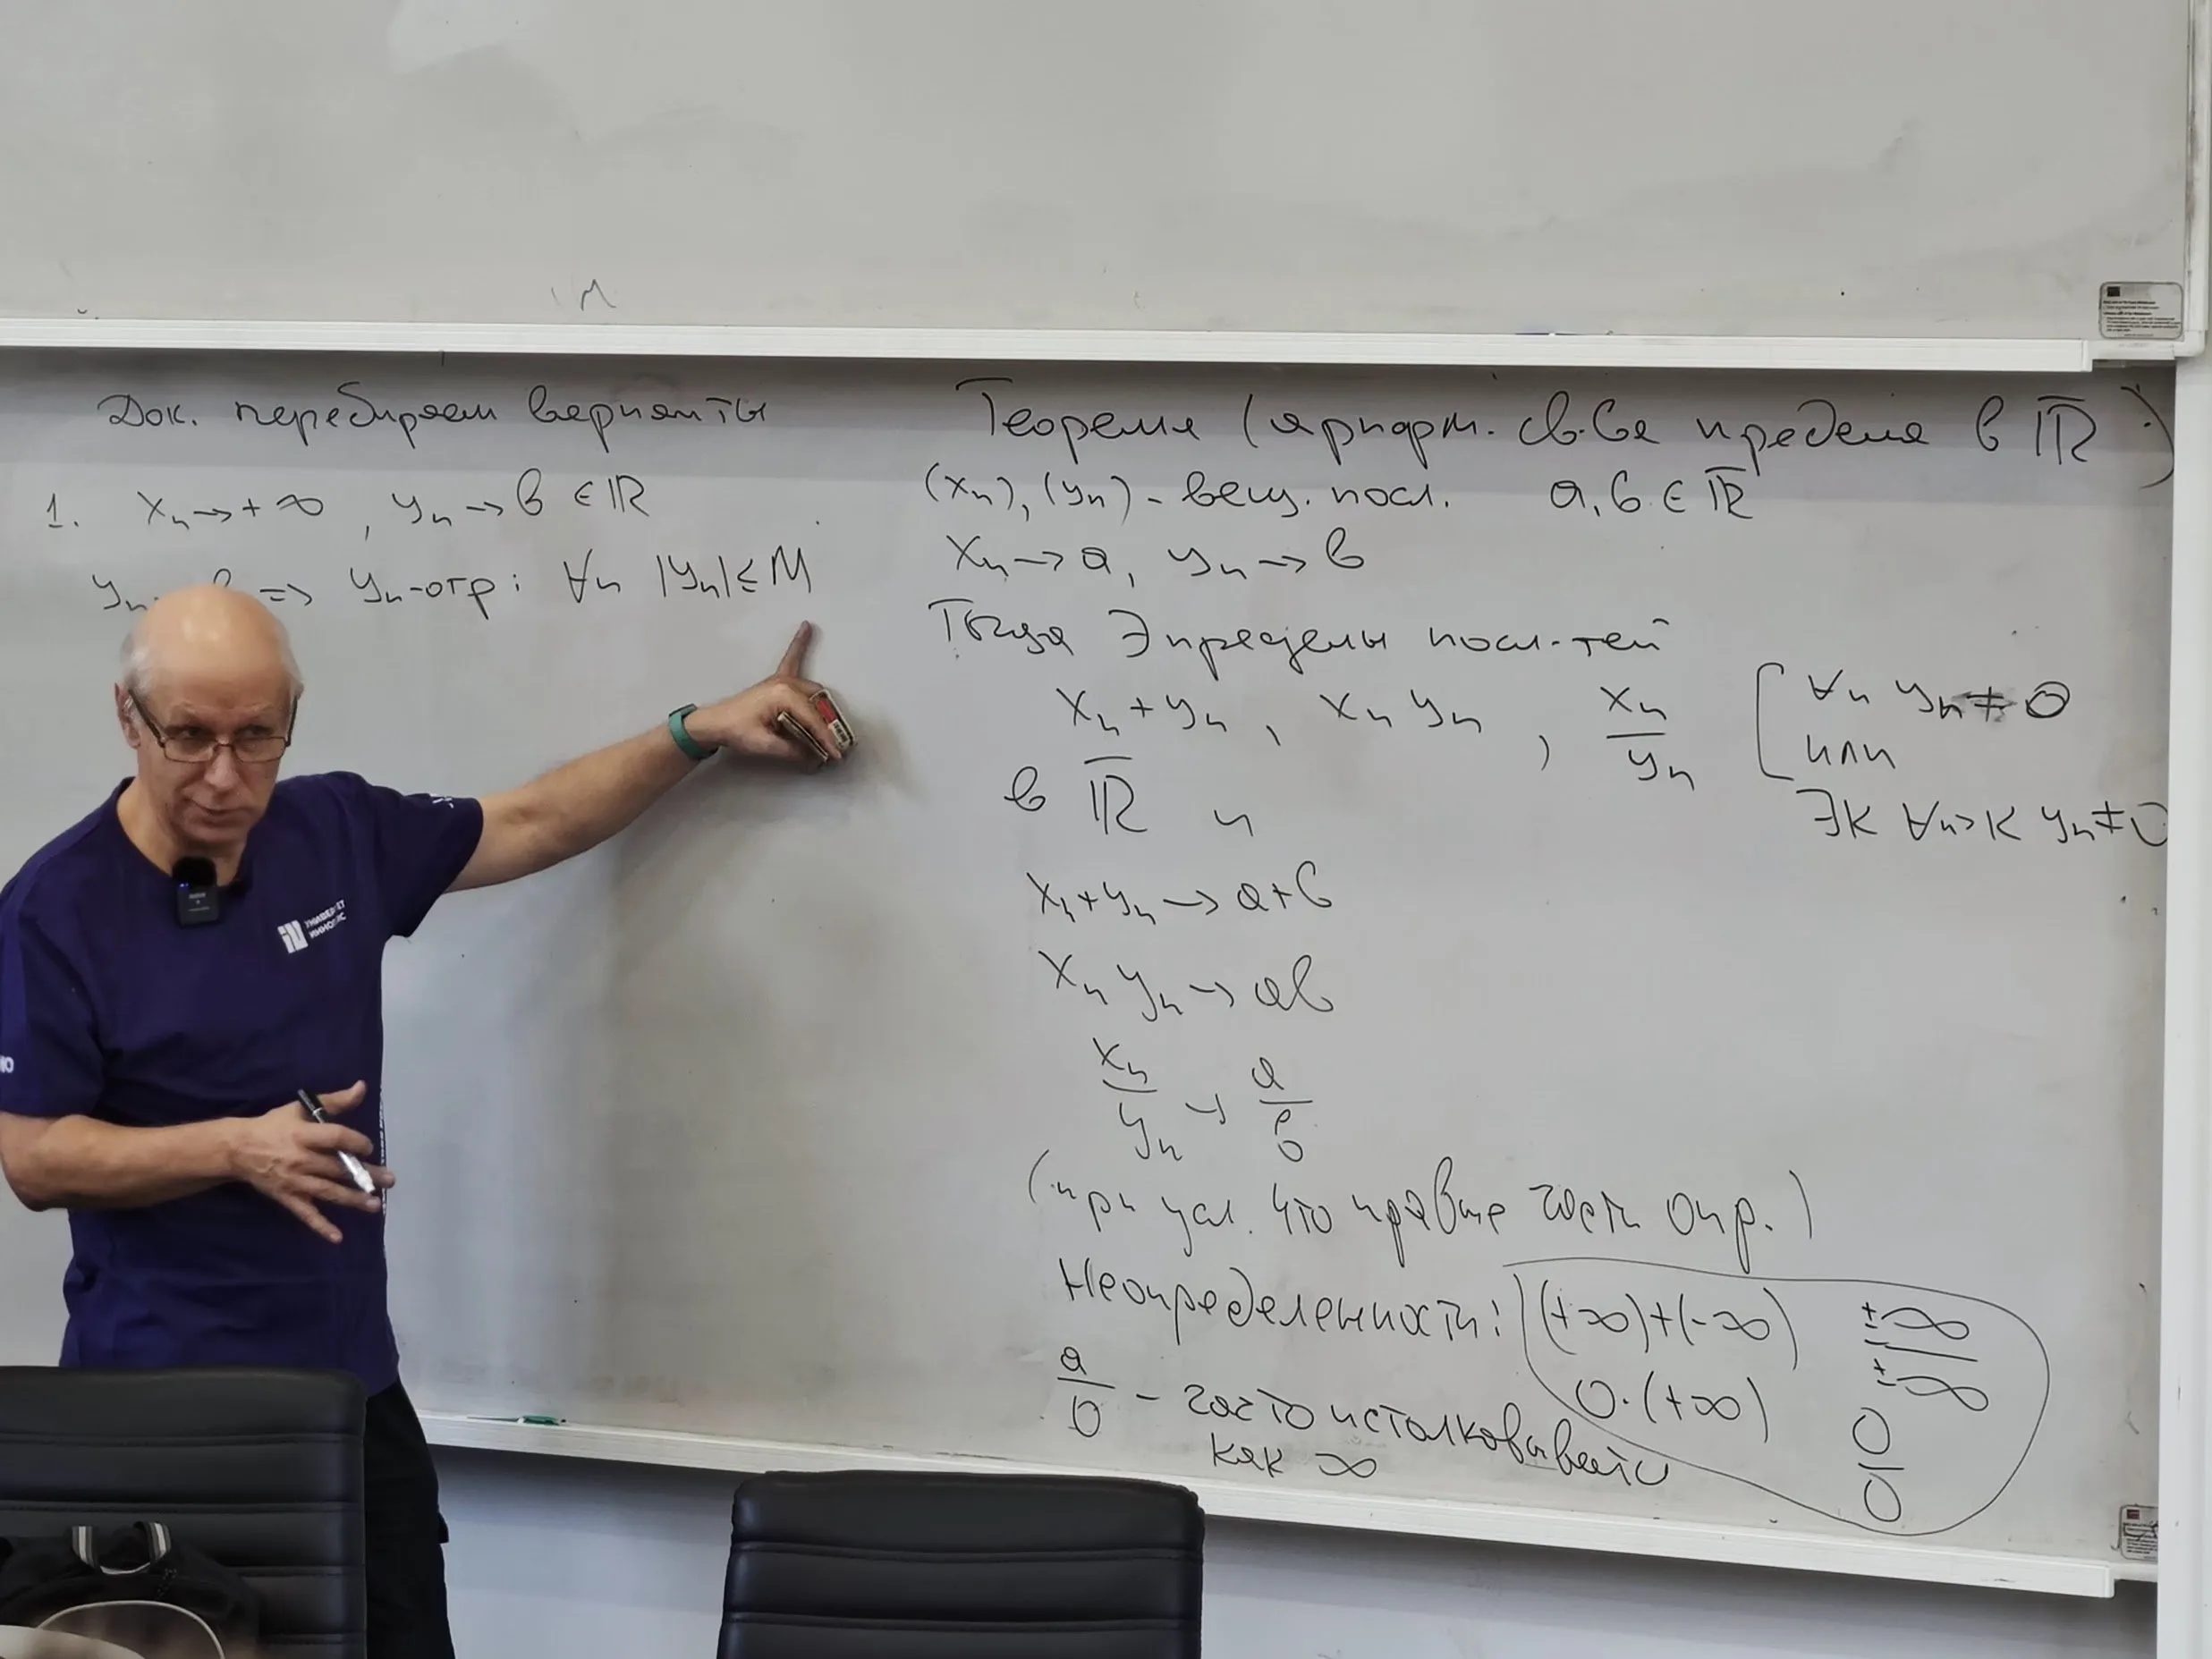 Док. перебираем варианты
1. xₙ → +∞ , yₙ → b ∈ ℝ
yₙ => yₙ-огр: ∀n |yₙ| ≤ M
Теорема (арифм. св-ва предела в ℝ̅)
(xₙ), (yₙ) - вещ. посл. a, b ∈ ℝ̅
xₙ → a, yₙ → b
Тогда ∃ пределы посл-тей
xₙ + yₙ , xₙ yₙ , xₙ/yₙ [ ∀n yₙ ≠ 0
или
∃K ∀n>K yₙ ≠ 0
в ℝ̅ и
xₙ + yₙ → a + b
xₙ yₙ → ab
xₙ/yₙ → a/b
(при усл. что правые части опр.)
Неопределенности: (+∞)+(-∞) ±∞/±∞
0·(+∞) 0/0
a/0 - часто истолковывают
как ∞
УНИВЕРСИТЕТ
ИННОПОЛИС